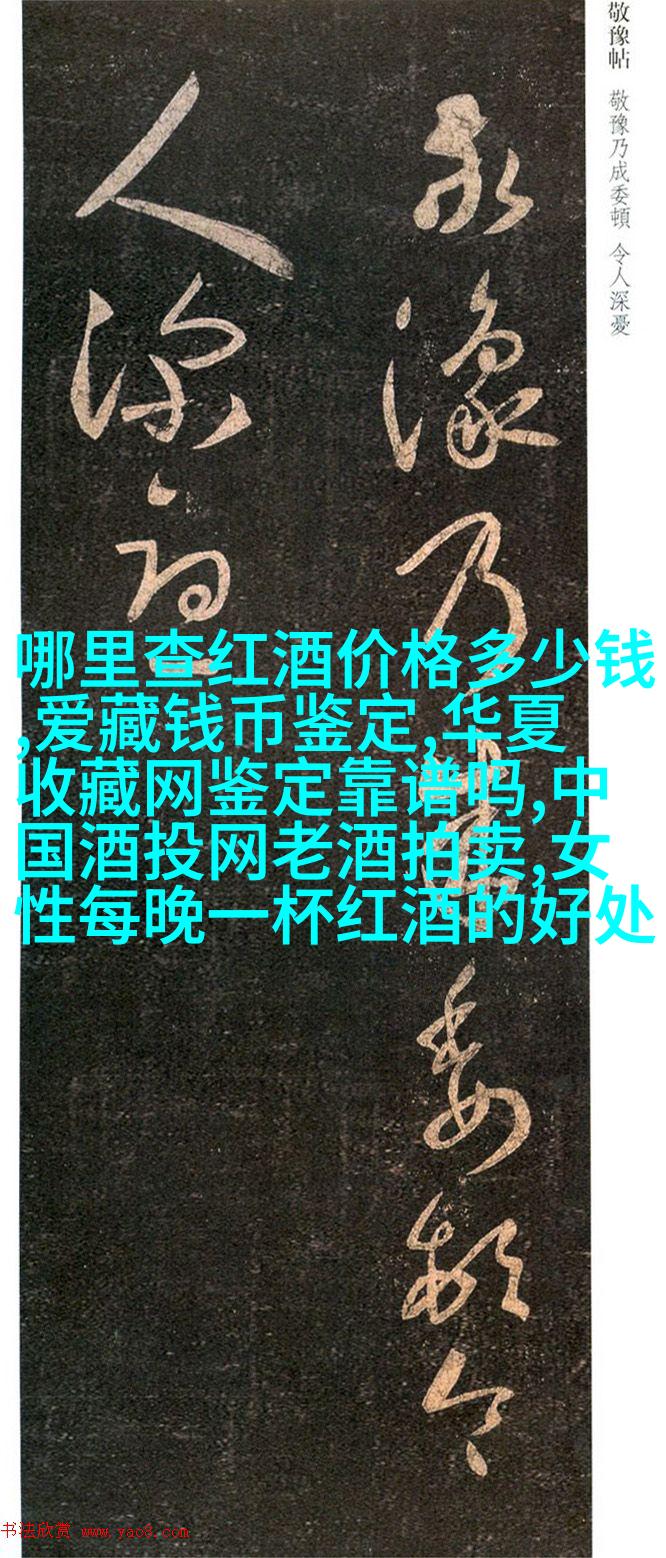 敬豫帖 敬豫乃成委頓 令人深憂
敬豫乃成委頓令
人深憂
哪里查红酒价格多少钱
,爱藏钱币鉴定,华夏
收藏网鉴定靠谱吗,中
国酒投网老酒拍卖,女
性每晚一杯红酒的好处
书法欣赏 www.yac8.com